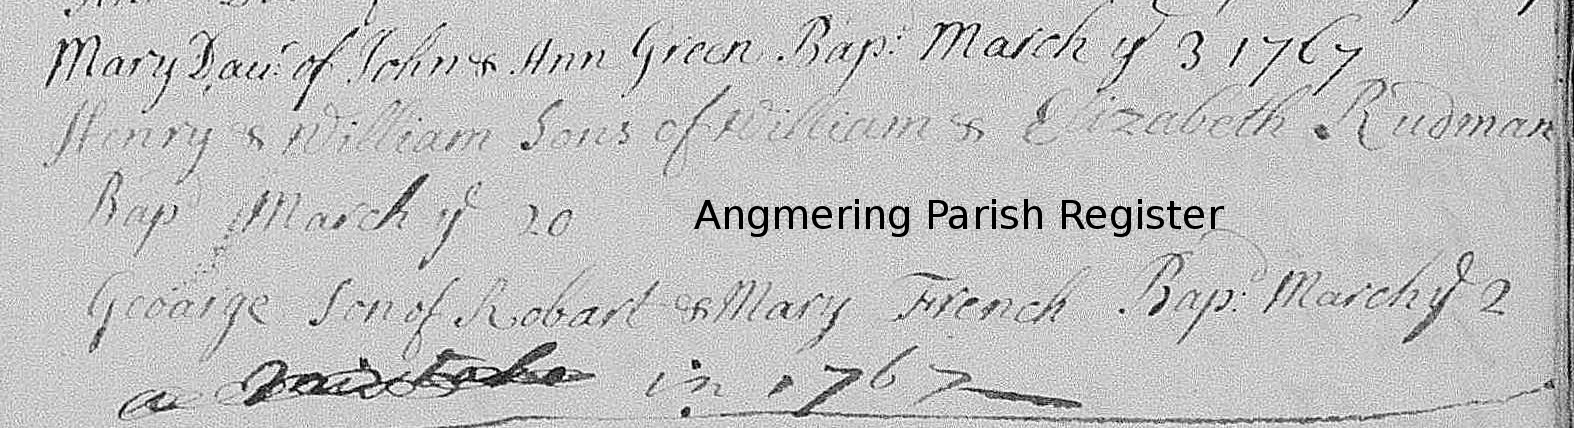 Mary Dau: of John & Ann Green Bap: March ye 3 1767
Henry & William Sons of William & Elizabeth Rudman
Bap March ye 20
Angmering Parish Register
Geoarge Son of Robart & Mary French Bap: March ye 2
a mistake in 1767